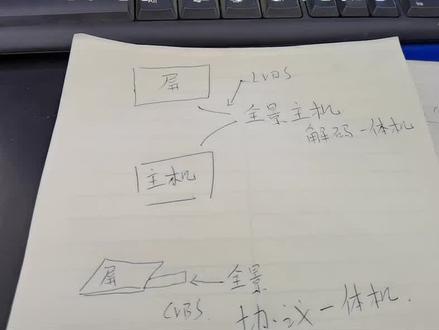 屏
LVDS
全景主机
解码一体机
主机
屏
全景
CVBS.
协议一体机.